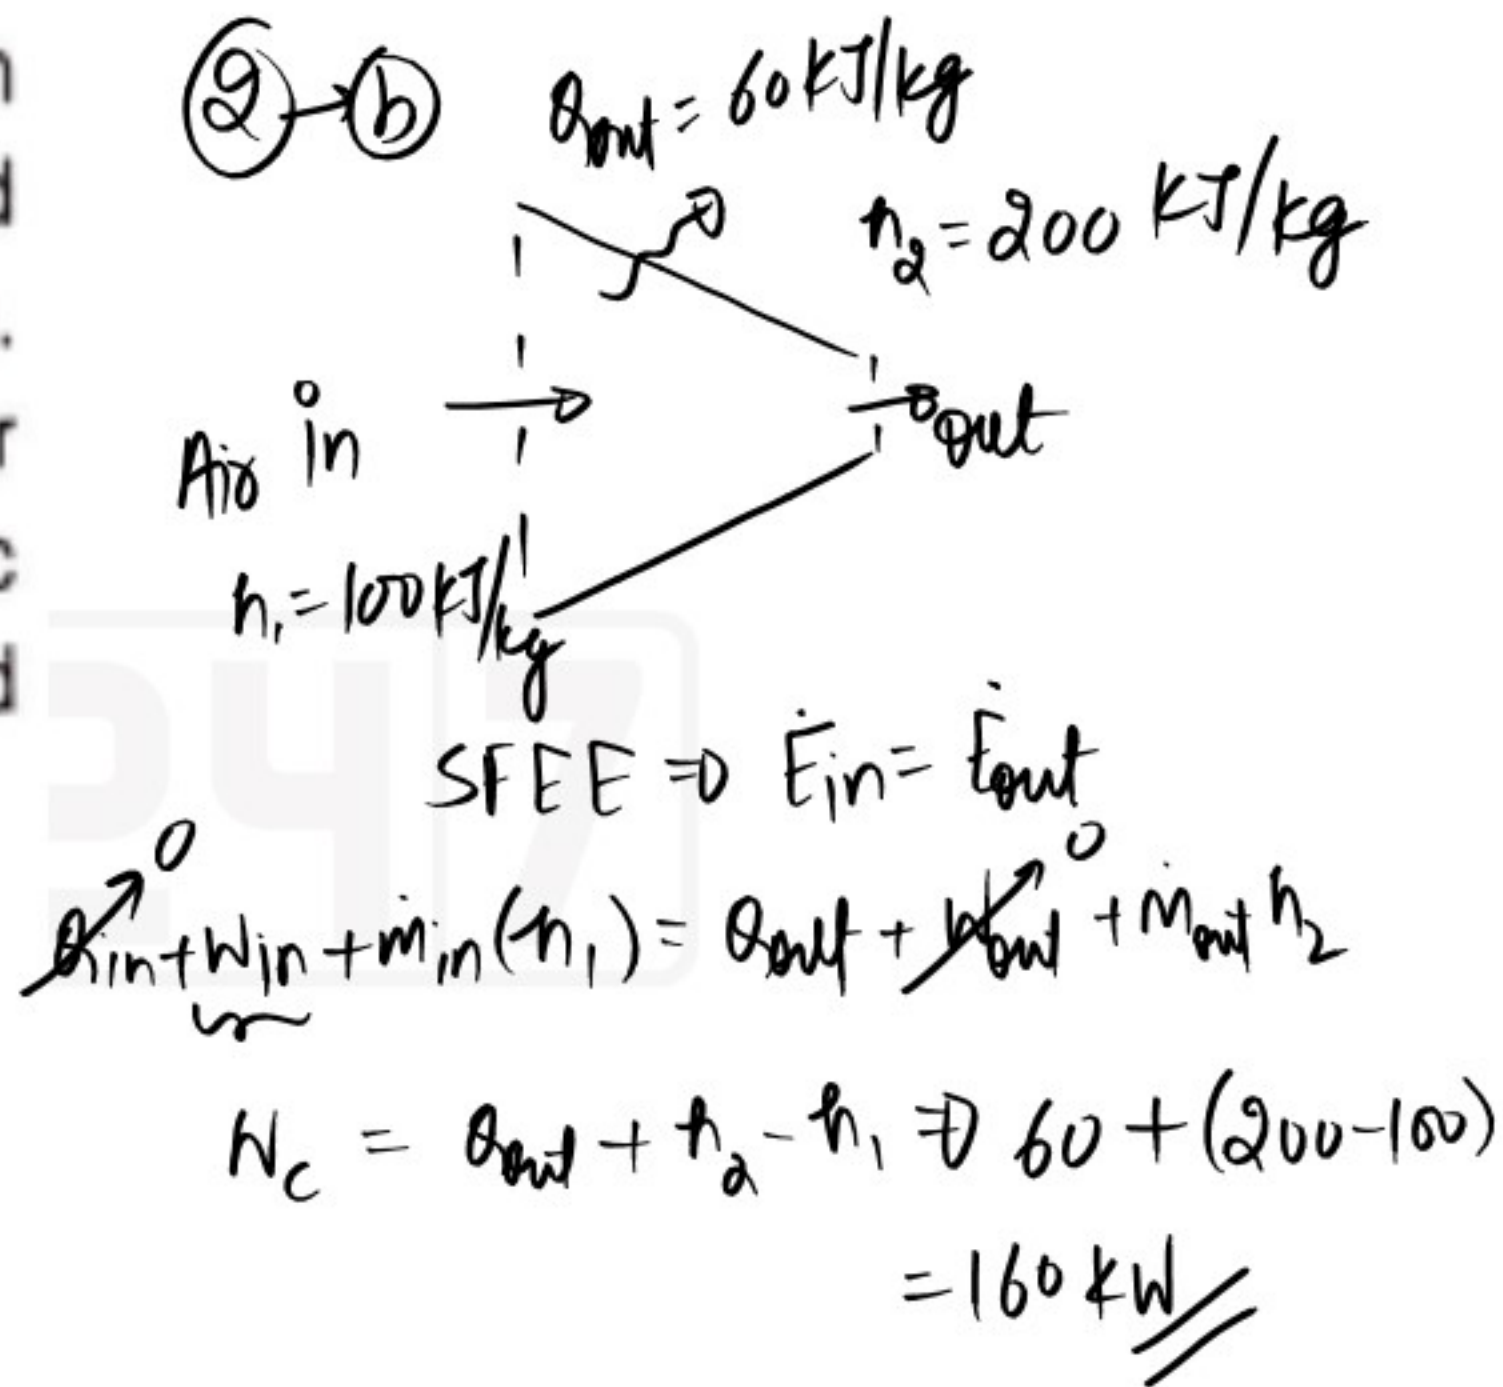 2 → b Qout = 60 kJ/kg
h₂ = 200 kJ/kg
Air in
out
h₁ = 100 kJ/kg
SFEE ⇒ Ėin = Ėout
0 0
Qin + Win + ṁin (h₁) = Qout + Wout + ṁout h₂
Wc = Qout + h₂ - h₁ ⇒ 60 + (200-100)
= 160 kW
247